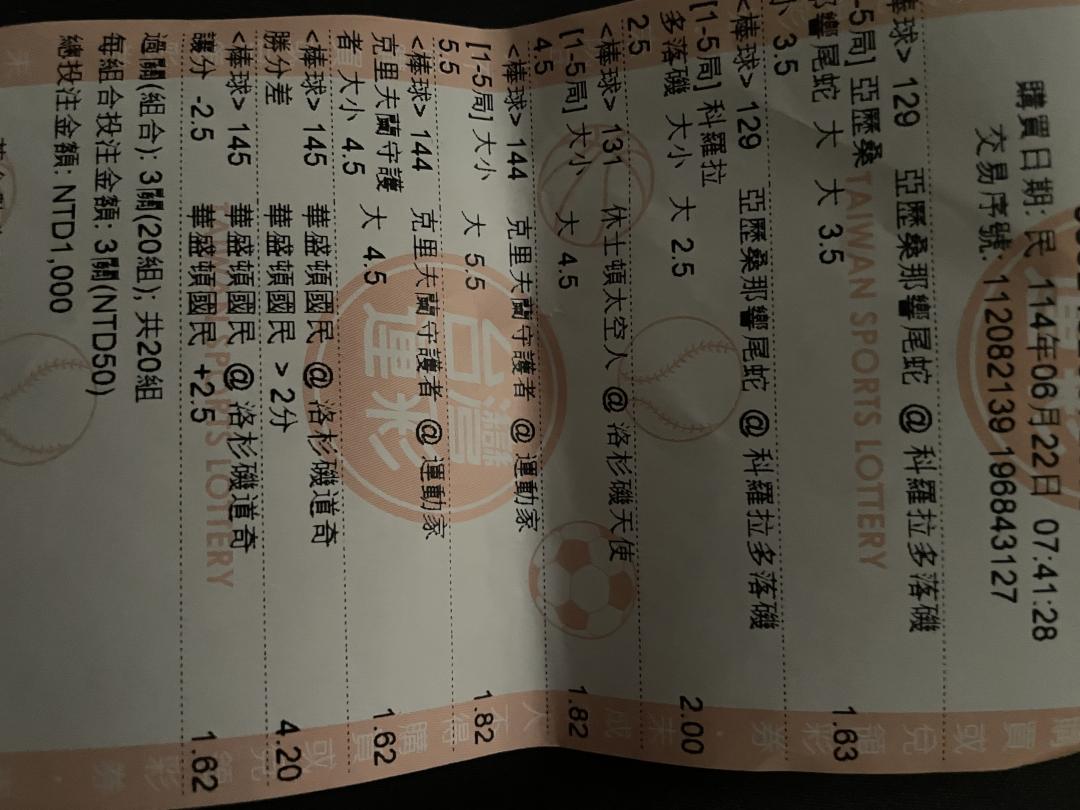 購買日期: 民 114年06月22日 07:41:28
交易序號: 112082139 196843127
棒球> 129 亞歷桑那響尾蛇 @ 科羅拉多落磯
-5局] 亞歷桑
那響尾蛇 大 大 3.5 1.63
小 3.5
<棒球> 129 亞歷桑那響尾蛇 @ 科羅拉多落磯
[1-5局] 科羅拉
多落磯 大小 大 2.5 2.00
2.5
<棒球> 131 休士頓太空人 @ 洛杉磯天使
[1-5局] 大小 大 4.5 1.82
4.5
<棒球> 144 克里夫蘭守護者 @ 運動家
[1-5局] 大小 大 5.5 1.82
5.5
<棒球> 144 克里夫蘭守護者 @ 運動家
克里夫蘭守護 大 4.5 1.62
者 大小 4.5
<棒球> 145 華盛頓國民 @ 洛杉磯道奇
勝分差 華盛頓國民 > 2分 4.20
<棒球> 145 華盛頓國民 @ 洛杉磯道奇
讓分 -2.5 華盛頓國民 +2.5 1.62
過關(組合): 3關(20組); 共20組
每組合投注金額: 3關(NTD50)
總投注金額: NTD1,000
TAIWAN SPORTS LOTTERY
台灣
運彩